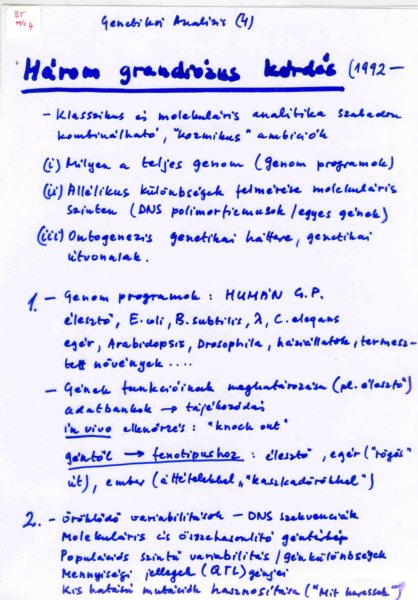 BT
M44
Genetikai Analízis (4)
Három grandiózus kérdés (1992–
- Klasszikus és molekuláris analitika szabadon
kombinálható, "kozmikus" ambíciók
(i) Milyen a teljes genom (genom programok)
(ii) Allélikus különbségek felmérése molekuláris
szinten (DNS polimorfizmusok/egyes gének)
(iii) Ontogenezis genetikai háttere, genetikai
útvonalak.
1. - Genom programok: HUMÁN G.P.
élesztő, E. coli, B. subtilis, λ, C. elegans
egér, Arabidopsis, Drosophila, háziállatok, termesz-
tett növények ....
- Gének funkcióinak meghatározása (pl. élesztő)
adatbankok → tájékozódás
in vivo ellenőrzés: "knock out"
géntől → fenotípushoz: élesztő, egér ("rögös"
út), ember (áttételekkel, "kaszkadőrökkel")
2. - Öröklődő variabilitások - DNS szekvenciák
Molekuláris és összehasonlító géntérkép
Populációs szintű variabilitás/génkülönbségek
Mennyiségi jellegek (QTL) génjei
Kis hatású mutációk hasznosítása ("Mit keressek")